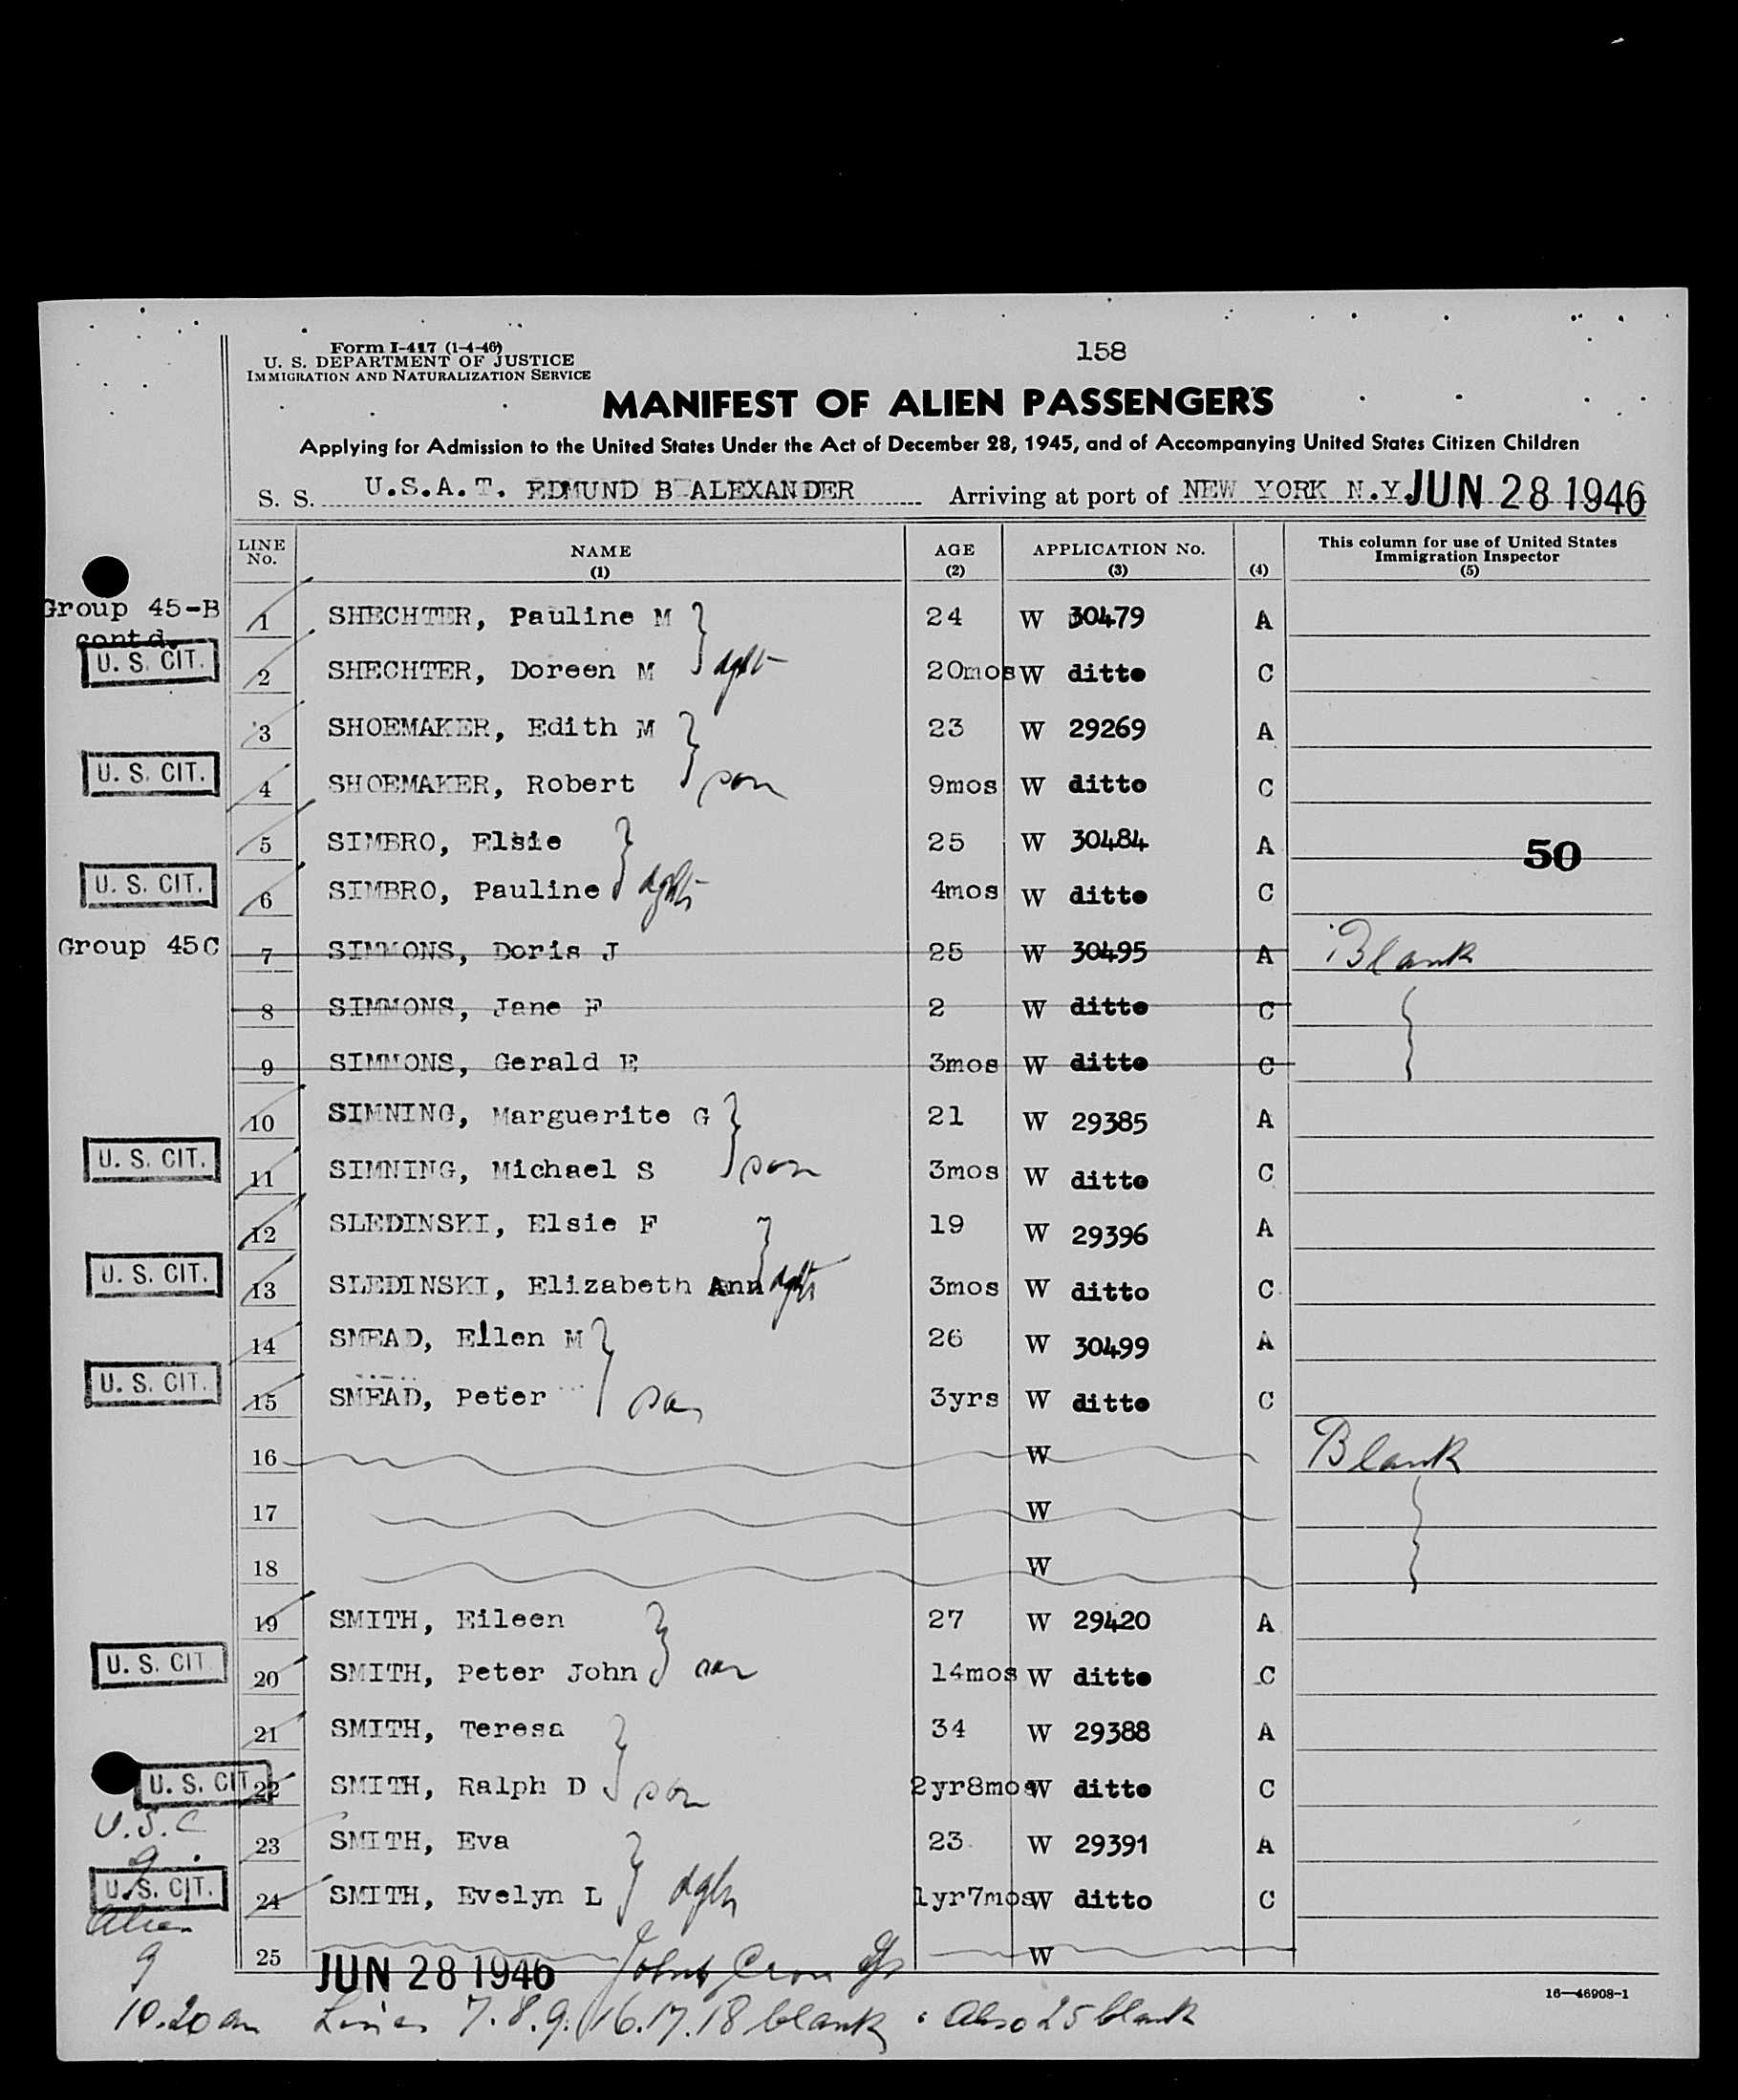 Form I-417 (1-4-46)
U. S. DEPARTMENT OF JUSTICE
IMMIGRATION AND NATURALIZATION SERVICE
158
MANIFEST OF ALIEN PASSENGERS
Applying for Admission to the United States Under the Act of December 28, 1945, and of Accompanying United States Citizen Children
S. S. U.S.A.T. EDMUND B ALEXANDER Arriving at port of NEW YORK N.Y. JUN 28 1946
LINE No. NAME (1) AGE (2) APPLICATION No. (3) (4) This column for use of United States Immigration Inspector (5)
Group 45-B 1 SHECHTER, Pauline M 24 W 30479 A
contd.
U. S. CIT. 2 SHECHTER, Doreen M dght 20mos W ditto C
3 SHOEMAKER, Edith M 23 W 29269 A
U. S. CIT. 4 SHOEMAKER, Robert son 9mos W ditto C
5 SIMBRO, Elsie 25 W 30484 A 50
U. S. CIT. 6 SIMBRO, Pauline dght 4mos W ditto C
Group 45C 7 SIMMONS, Doris J 25 W 30495 A Blank
8 SIMMONS, Jane F 2 W ditto C
9 SIMMONS, Gerald E 3mos W ditto C
10 SIMNING, Marguerite G 21 W 29385 A
U. S. CIT. 11 SIMNING, Michael S son 3mos W ditto C
12 SLEDINSKI, Elsie F 19 W 29396 A
U. S. CIT. 13 SLEDINSKI, Elizabeth Ann dght 3mos W ditto C
14 SMEAD, Ellen M 26 W 30499 A
U. S. CIT. 15 SMEAD, Peter son 3yrs W ditto C
16 W Blank
17 W
18 W
19 SMITH, Eileen 27 W 29420 A
U. S. CIT 20 SMITH, Peter John son 14mos W ditto C
21 SMITH, Teresa 34 W 29388 A
U. S. CIT 22 SMITH, Ralph D son 2yr8mos W ditto C
U.S.C
9 23 SMITH, Eva 23 W 29391 A
U. S. CIT. 24 SMITH, Evelyn L dght 1yr7mos W ditto C
Alien
9 25 W
JUN 28 1946
16—46908-1
10.20 am Lines 7.8.9.16.17.18 blank. Also 25 blank